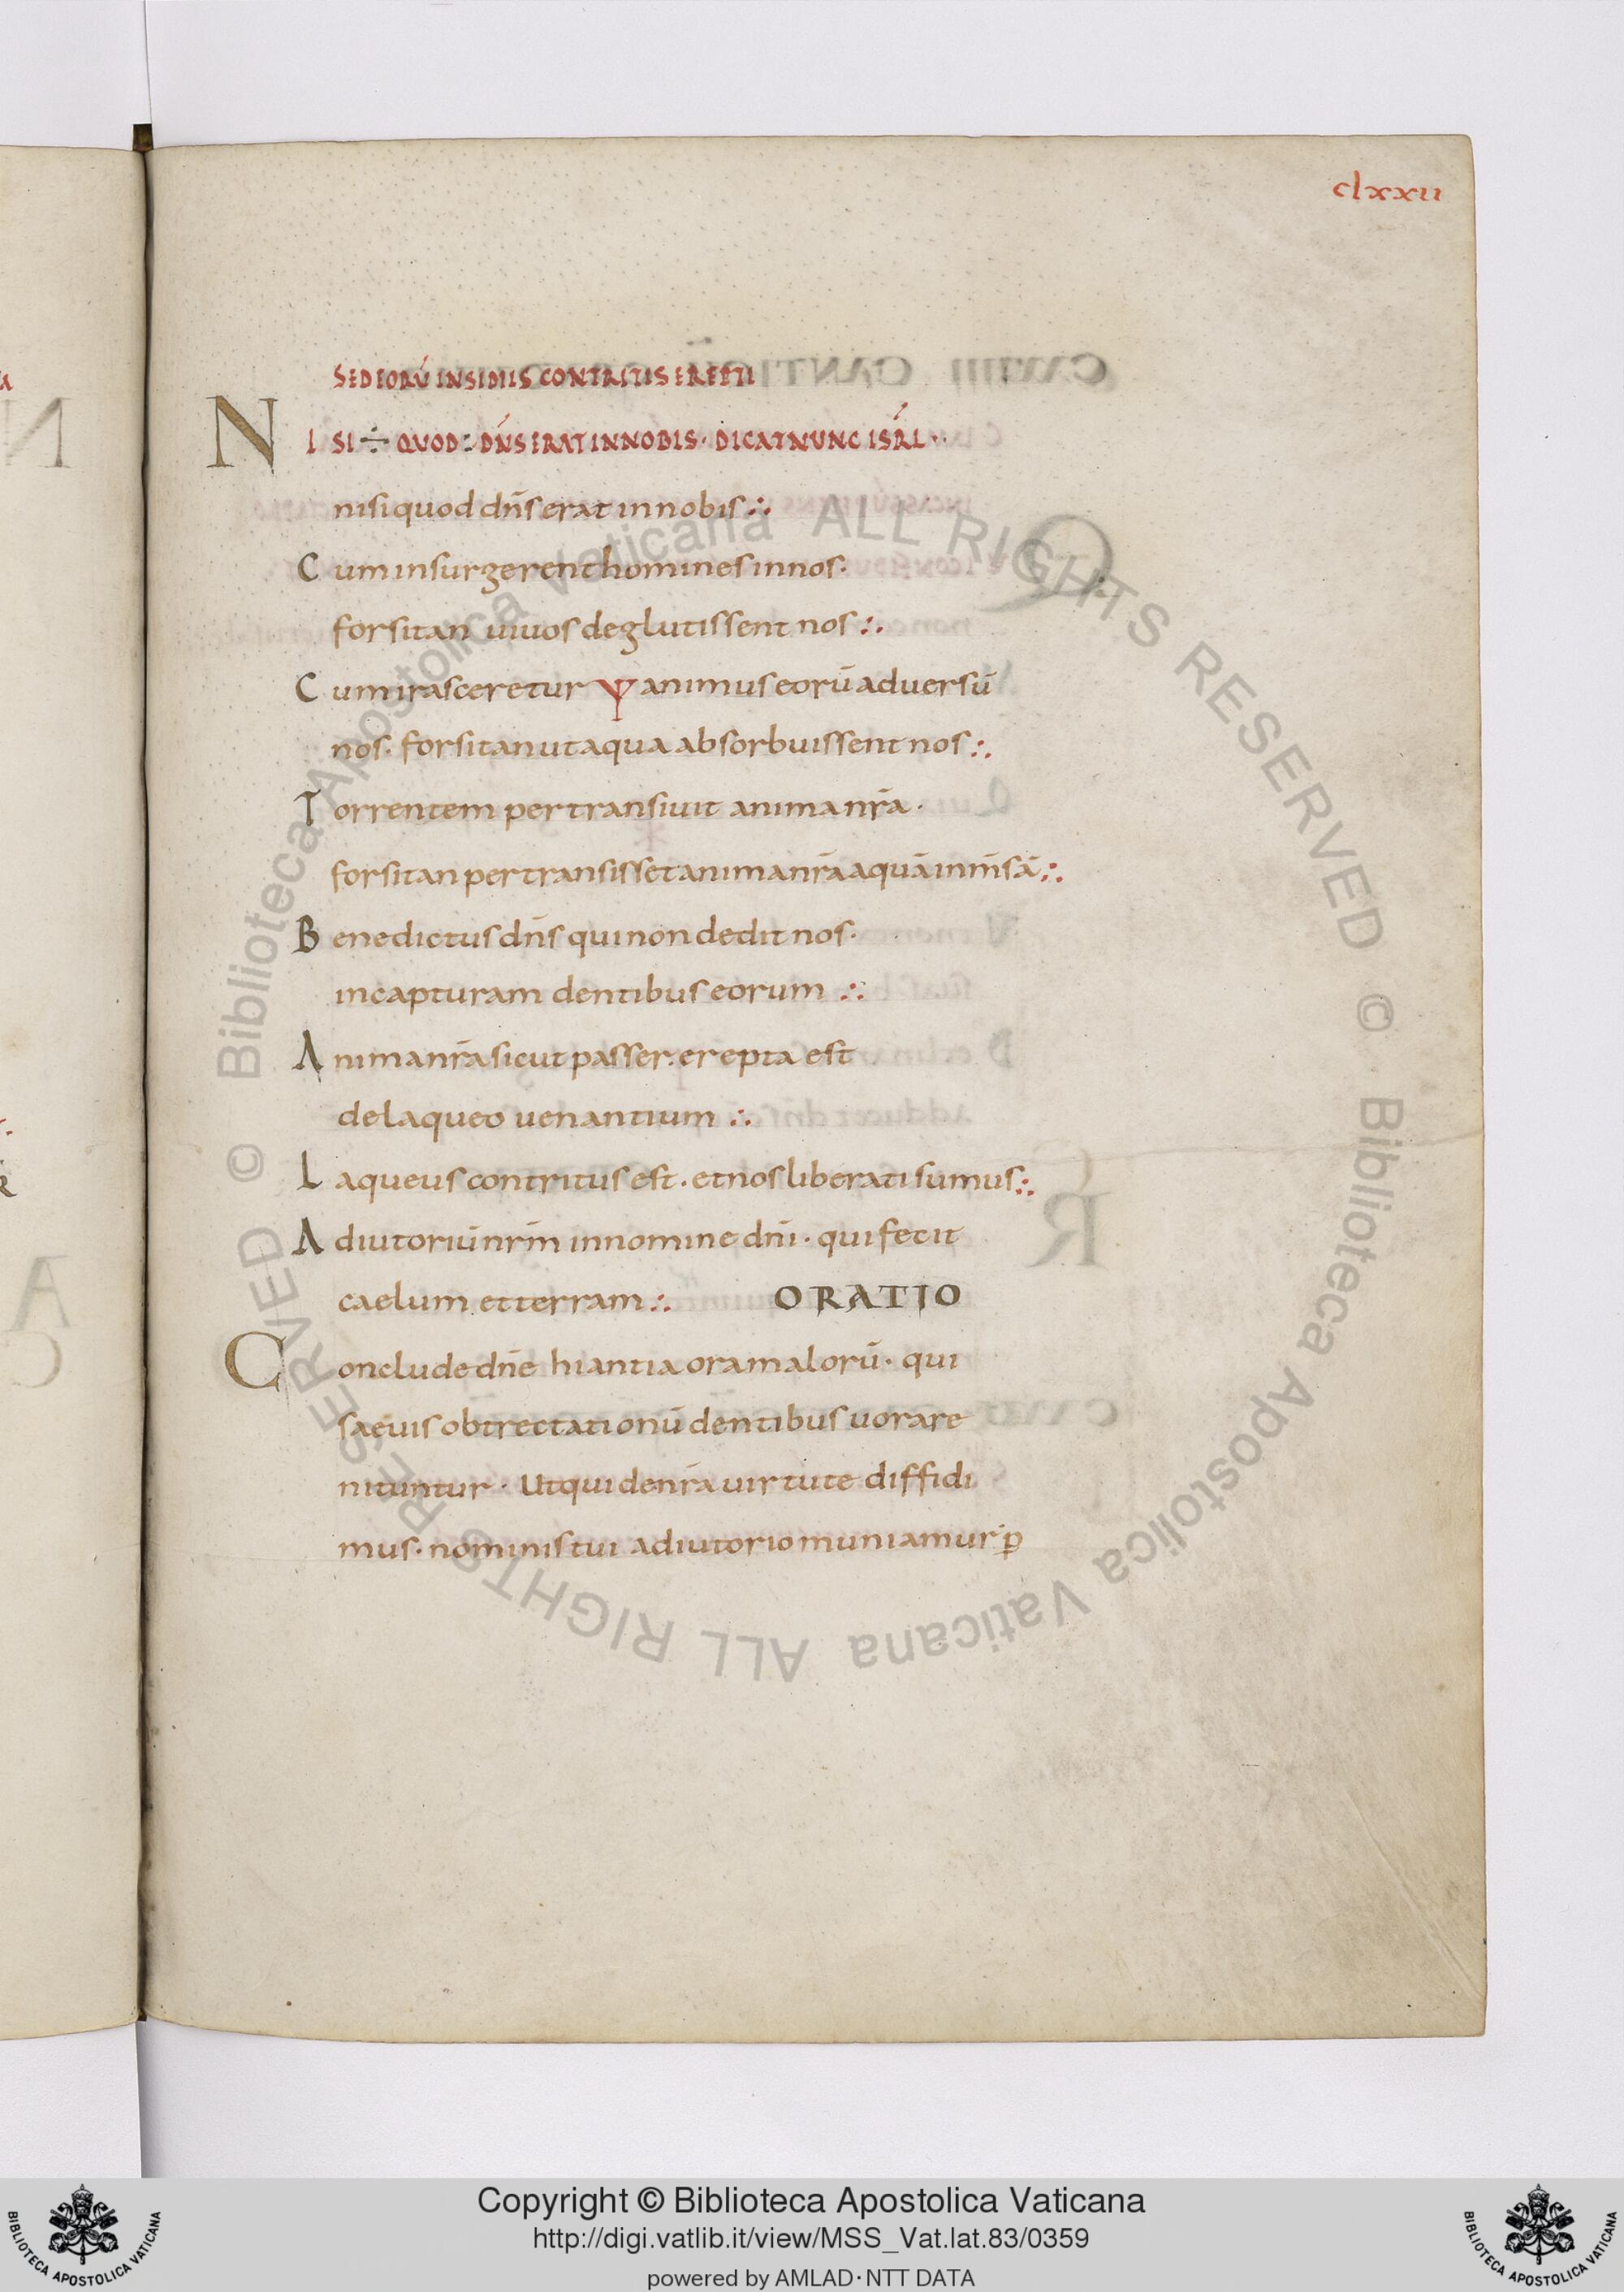 clxxii
SED EORŪ INSIDIIS CONTRITIS EREPTI
NISI ÷ QUOD : DN̄S ERAT IN NOBIS · DICAT NUNC ISRL̄ ·.
nisi quod dn̄s erat in nobis ∴
Cum insurgerent homines in nos·
forsitan vivos deglutissent nos ∴
Cum irasceretur Ψ animus eorū adversū
nos· forsitan ut aqua absorbuissent nos ∴
Torrentem pertransivit anima nr̄a ·
forsitan pertransisset anima nr̄a aquā inm̄sā ∴
Benedictus dn̄s qui non dedit nos·
in capturam dentibus eorum ∴
Anima nr̄a sicut passer· erepta est
de laqueo uenantium ∴
Laqueus contritus est · et nos liberati sumus ∴
Adiutoriū nr̄m in nomine dn̄i · qui fecit
caelum et terram ∴ ORATIO
Conclude dn̄e hiantia ora malorū · qui
saeuis obtrectationū dentibus uorare
nituntur · Ut qui de nr̄a uirtute diffidi
mus · nominis tui adiutorio muniamur· ꝑ
© Biblioteca Apostolica Vaticana ALL RIGHTS RESERVED
© Biblioteca Apostolica Vaticana ALL RIGHTS RESERVED
Copyright © Biblioteca Apostolica Vaticana
http://digi.vatlib.it/view/MSS_Vat.lat.83/0359
powered by AMLAD·NTT DATA
BIBLIOTECA APOSTOLICA VATICANA
BIBLIOTECA APOSTOLICA VATICANA